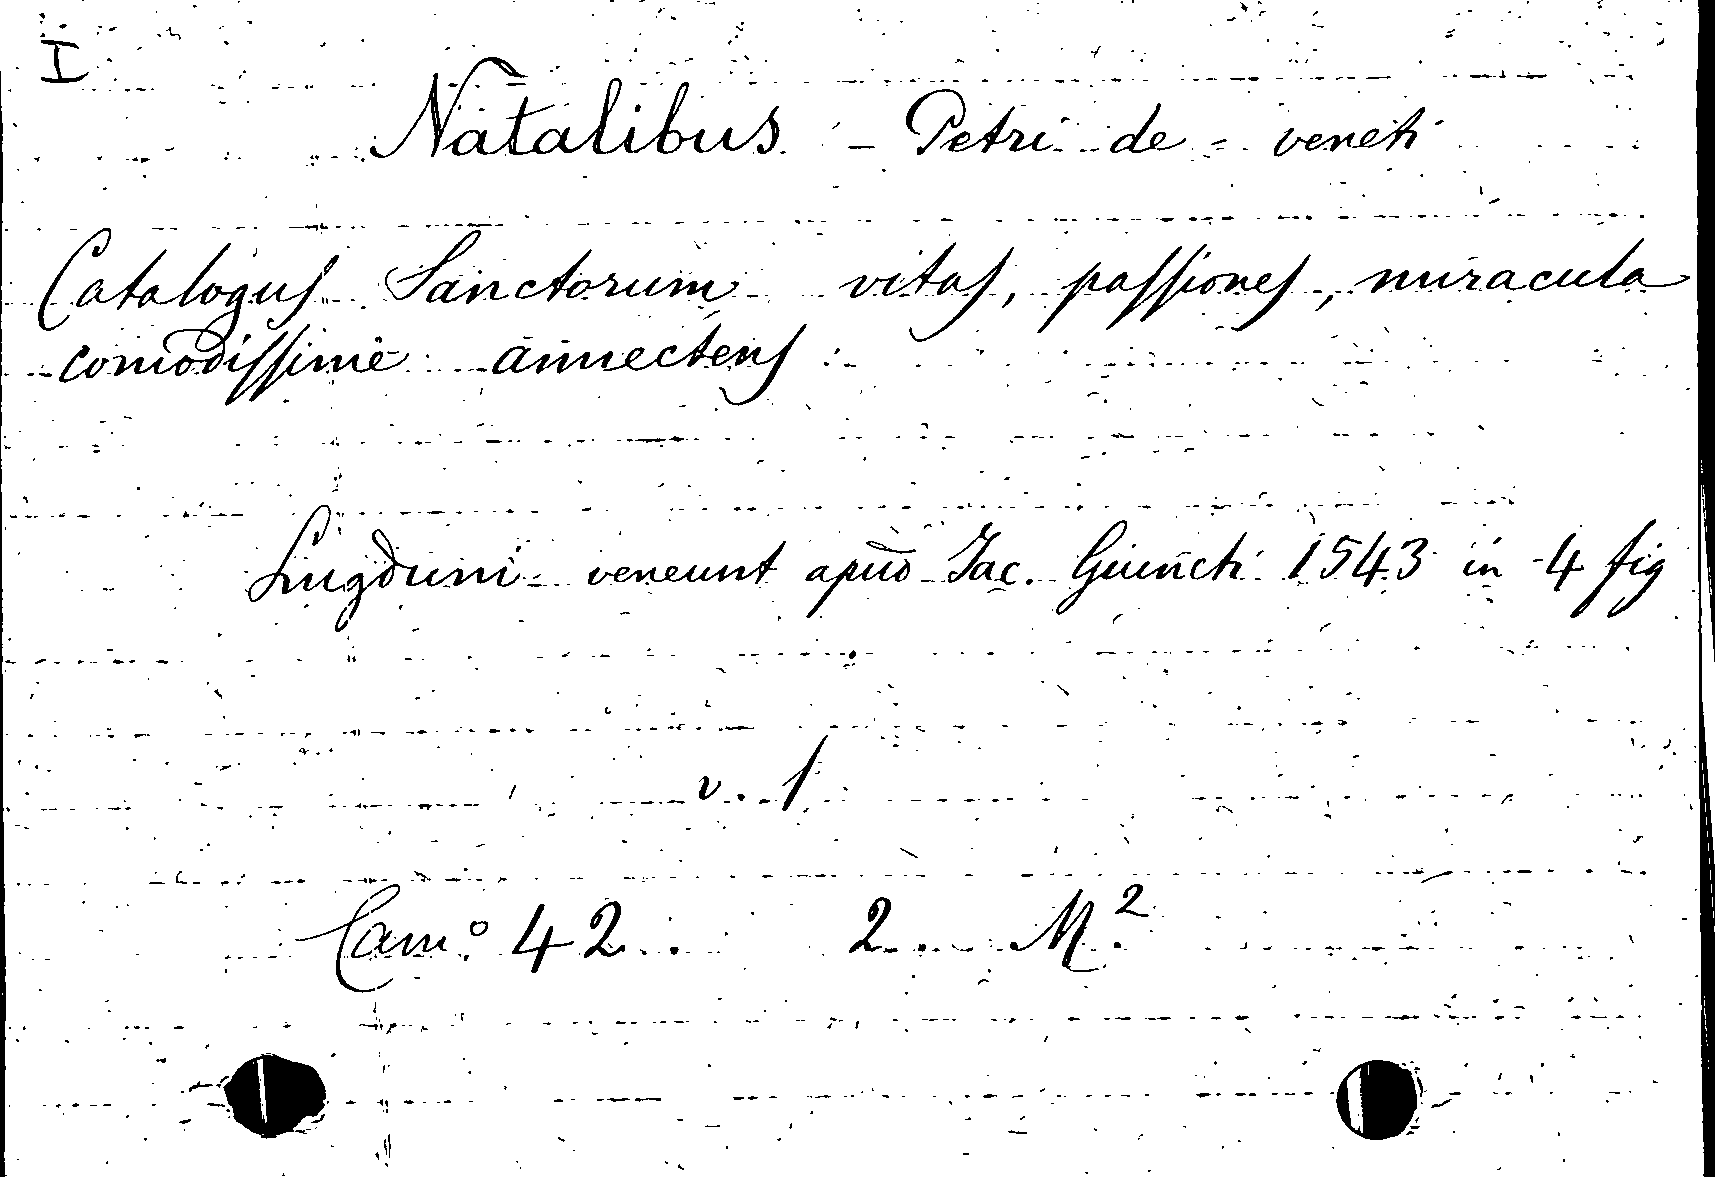 I
Natalibus - Petri de - veneti
Catalogus Sanctorum vitas, passiones, miracula
comodissime annectens :
Lugduni - veneunt apud Jac. Giuncti 1543 in - 4 fig
v. 1
Cam:º 42. 2. M.²